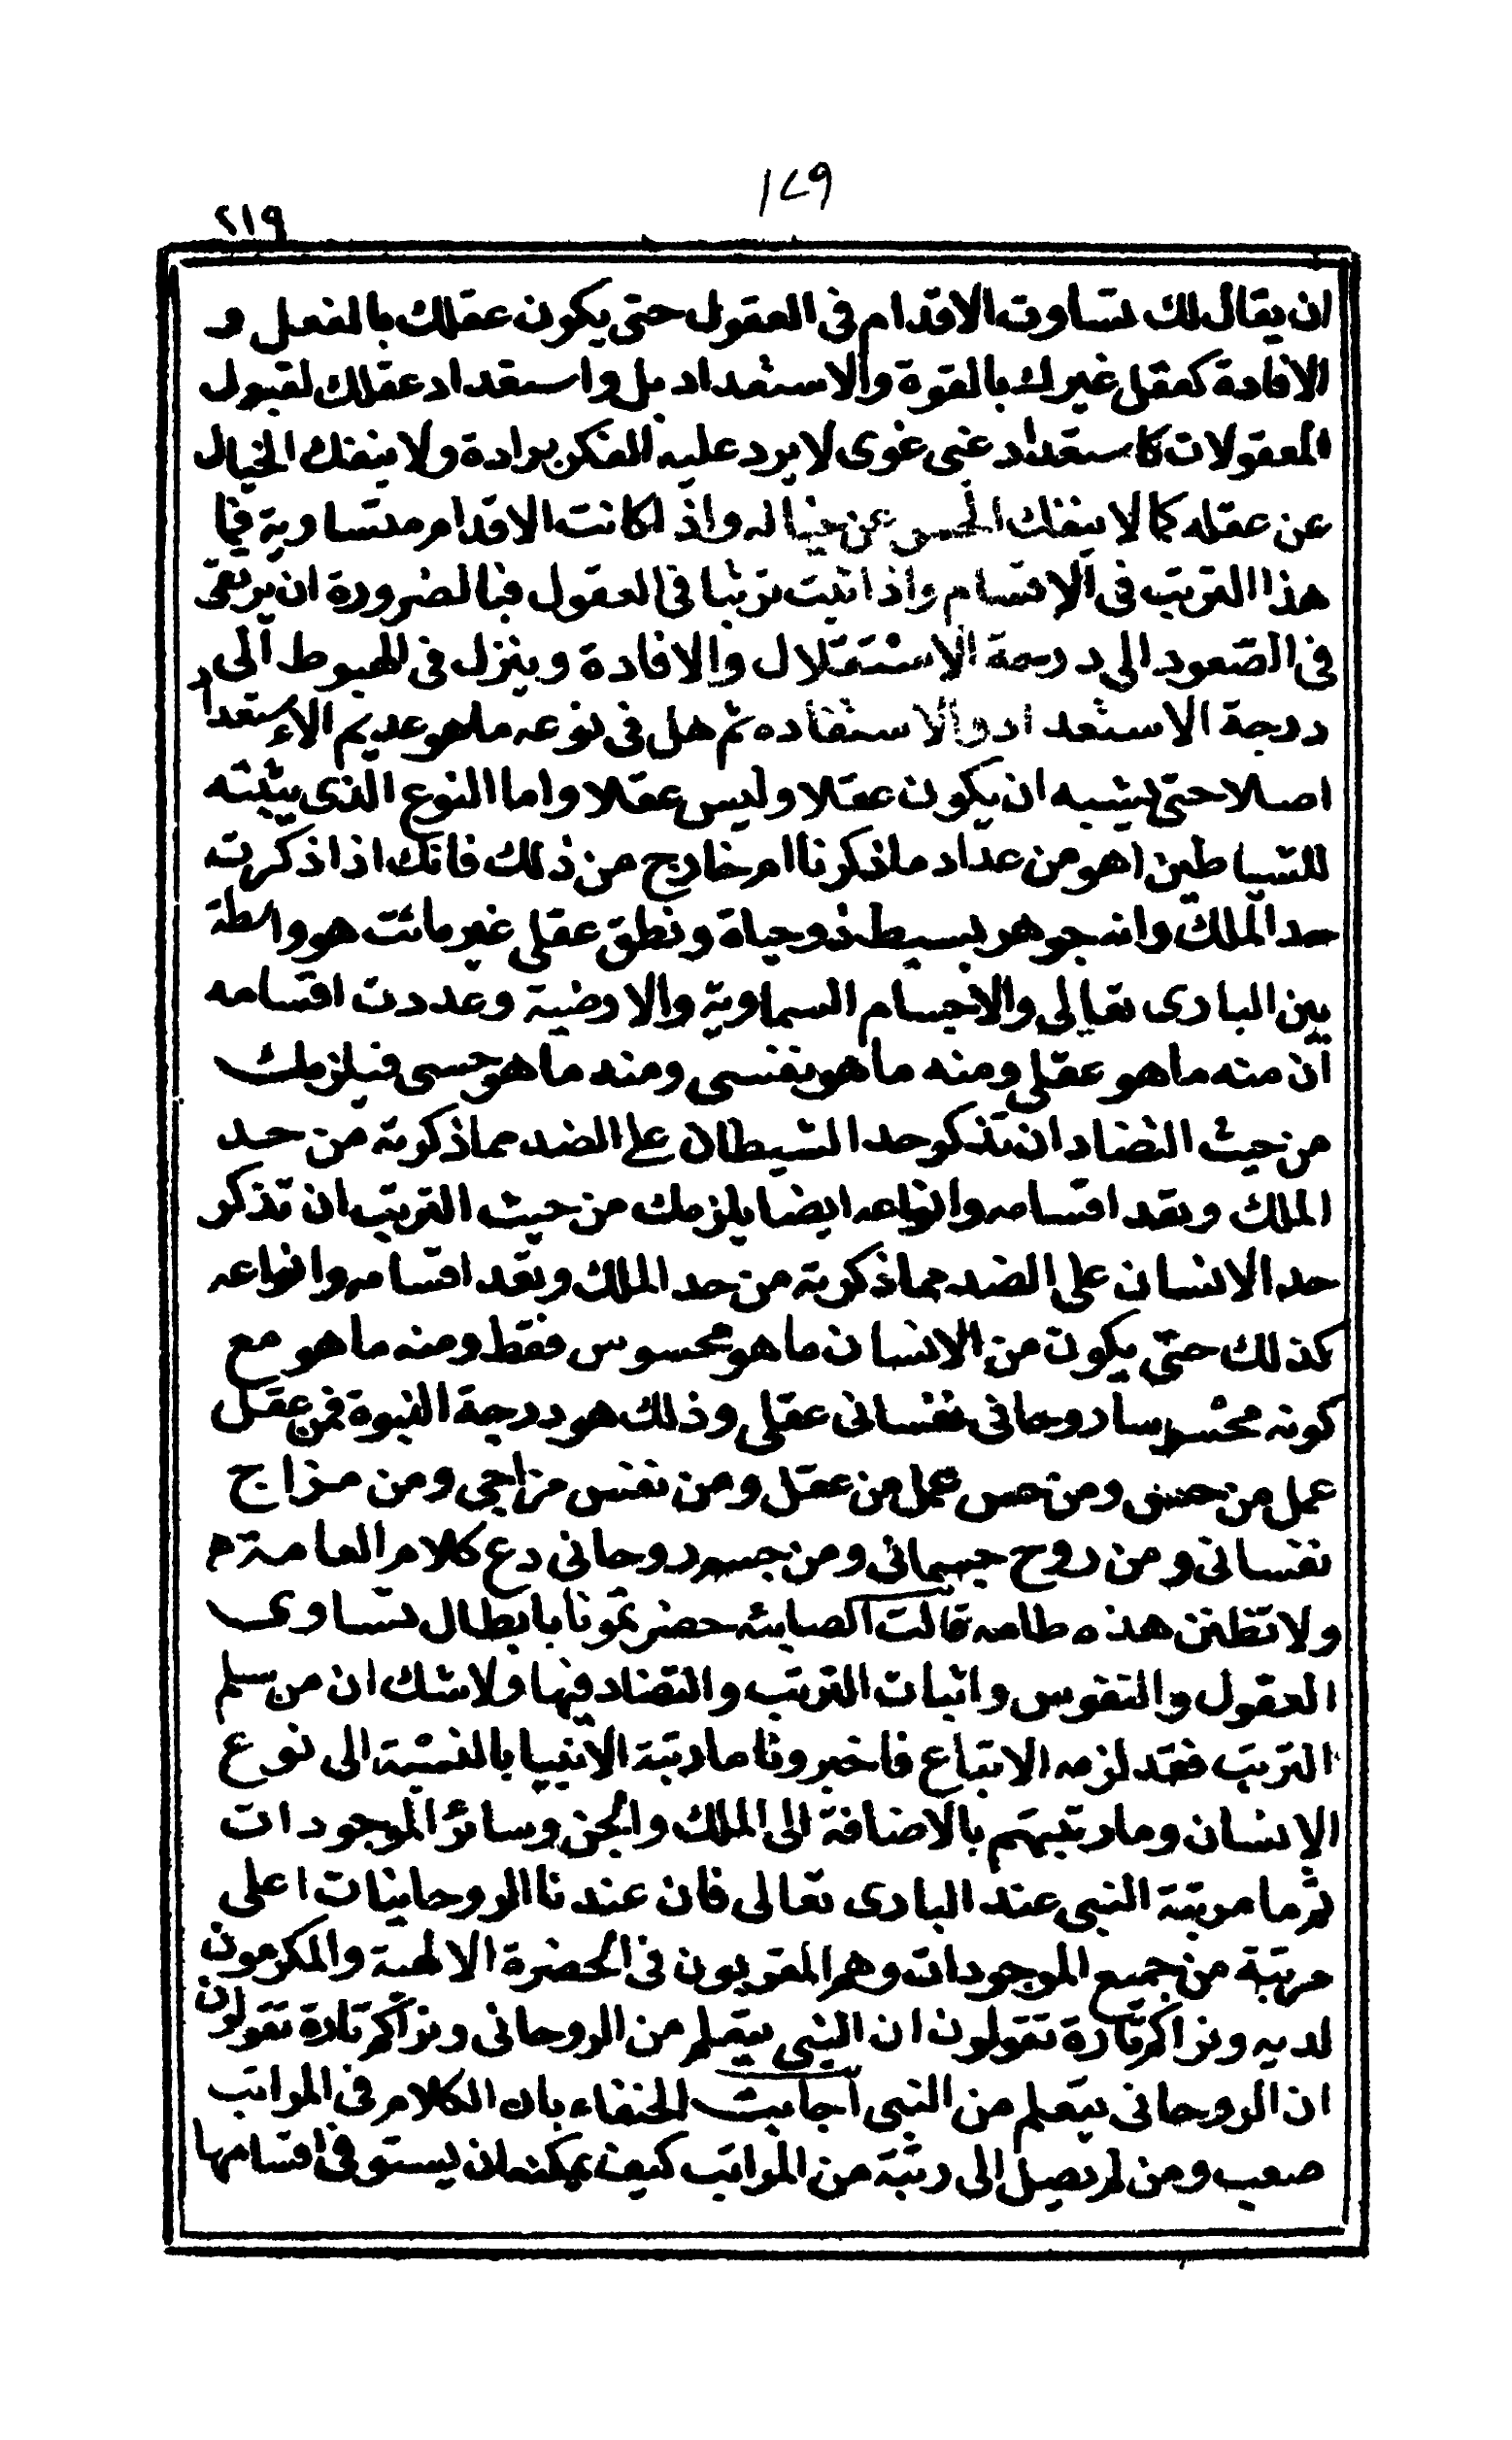 ١٤٩
٢١٩
ان يقال لك تساوت الاقدام في العقول حتى يكون عقلك بالفعل و
الافادة كعقل غيرك بالقوة والاستعداد بل واستعداد عقلك لقبول
المعقولات كاستعداد غبي غوى لا يرد عليه الفكر برادة ولا ينفك الخيال
عن عقله كما لا ينفك الحس عن خياله واذا كانت الاقدام متساوية فما
هذا الترتب في الاقسام واذا اثبت ترتبا في العقول فبالضرورة ان يرتقى
في الصعود الى درجة الاستقلال والافادة وينزل في الهبوط الى
درجة الاستعداد والاستفاده ثم هل في نوعه ما هو عديم الاستعداد
اصلا حتى يشبه ان يكون عقلا وليس عقلا واما النوع الذى يثبته
للشياطين اهو من عداد ما ذكرنا ام خارج من ذلك فانك اذا ذكرت
حد الملك وانه جوهر بسيط ذو حياة ونطق عقلي غير مائت هو واسطة
بين البارى تعالى والاجسام السماوية والارضية وعددت اقسامه
ان منه ما هو عقلي ومنه ما هو نفسي ومنه ما هو حسى فيلزمك
من حيث التضاد ان تذكر حد الشيطان على الضد مما ذكرته من حد
الملك وتعد اقسامه وانواعه ايضا يلزمك من حيث الترتب ان تذكر
حد الانسان على الضد مما ذكرته من حد الملك وتعد اقسامه وانواعه
كذلك حتى يكون من الانسان ما هو محسوس فقط ومنه ما هو مع
كونه محسوسا روحاني نفساني عقلي وذلك هو درجة النبوة فمن عقل
عمل من حس ومن حس عمل من عقل ومن نفس مزاجي ومن مزاج
نفساني ومن روح جسماني ومن جسم روحاني دع كلام العامة م
ولا تظنن هذه طامه قالت الصابئه حضرتمونا بابطال تساوى
العقول والنفوس واثبات الترتب والتضاد فيها ولا شك ان من سلم
الترتب فقد لزمه الاتباع فاخبرونا ما رتبة الانبيا بالنسبة الى نوع
الانسان وما رتبتهم بالاضافة الى الملك والجن وسائر الموجودات
ثم ما مرتبة النبي عند البارى تعالى فان عندنا الروحانيات اعلى
مرتبة من جميع الموجودات وهم المقربون في الحضرة الالهية والمكرمون
لديه ونراكم تارة تقولون ان النبي يتعلم من الروحاني ونراكم تارة تقولون
ان الروحاني يتعلم من النبي اجابت الحنفاء بان الكلام في المراتب
صعب ومن لم يصل الى رتبة من المراتب كيف يمكنه ان يستوفى اقسامها